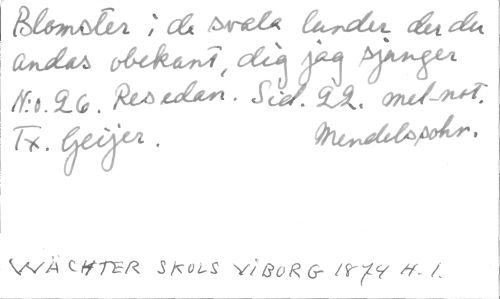 Blomster i de svala lunder der du
andas obekant, dig jag sjunger
N:o. 26. Resedan. Sid. 22. mel-not.
Tx. Geijer. Mendelssohn.
WÄCHTER SKOLS VIBORG 1874 H. 1.